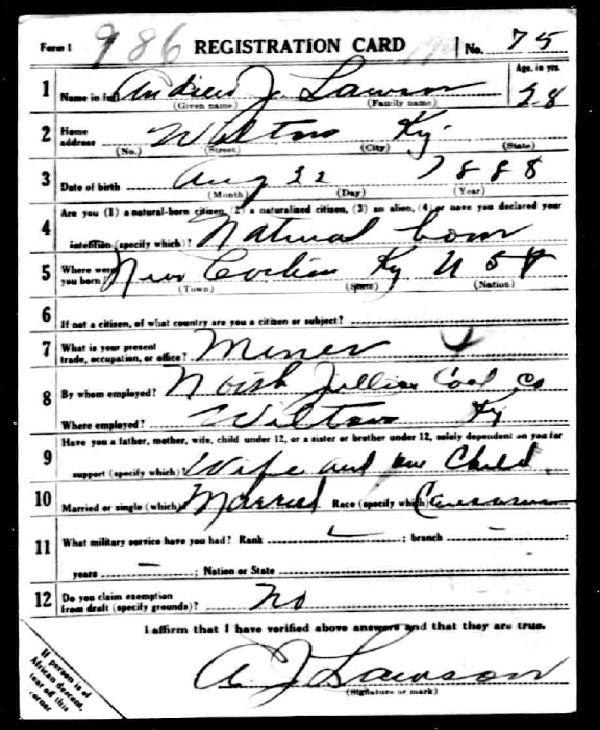 Form 1 986 REGISTRATION CARD No. 75
Age, in yrs.
1 Name in full Andrew J. Lawson 28
(Given name) (Family name)
2 Home address Wilton Ky.
(No.) (Street) (City) (State)
3 Date of birth Aug 22 1888
(Month) (Day) (Year)
4 Are you (1) a natural-born citizen, (2) a naturalized citizen, (3) an alien, (4) or have you declared your
intention (specify which)? Natural born
5 Where were you born? Near Corbin Ky U S A
(Town) (State) (Nation)
6 If not a citizen, of what country are you a citizen or subject?
7 What is your present trade, occupation, or office? Miner
8 By whom employed? North Jellico Coal Co
Where employed? Wilton Ky
9 Have you a father, mother, wife, child under 12, or a sister or brother under 12, solely dependent on you for
support (specify which)? Wife and one Child
10 Married or single (which)? Married Race (specify which)? Caucasian
11 What military service have you had? Rank — ; branch —
years — ; Nation or State
12 Do you claim exemption from draft (specify grounds)? No
I affirm that I have verified above answers and that they are true.
A J Lawson
(Signature or mark)
If person is of
African descent,
tear off this
corner